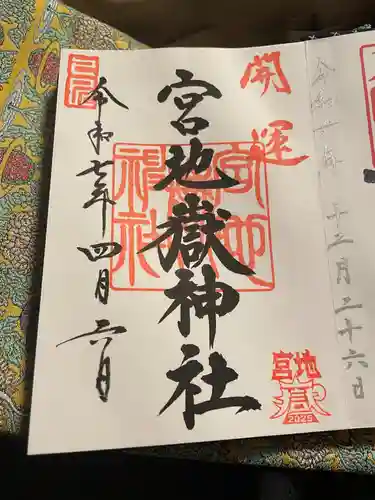 令和六年 十二月二十六日
開運
宮地嶽神社
令和七年四月六日
宮地嶽神社
宮地
嶽
2025